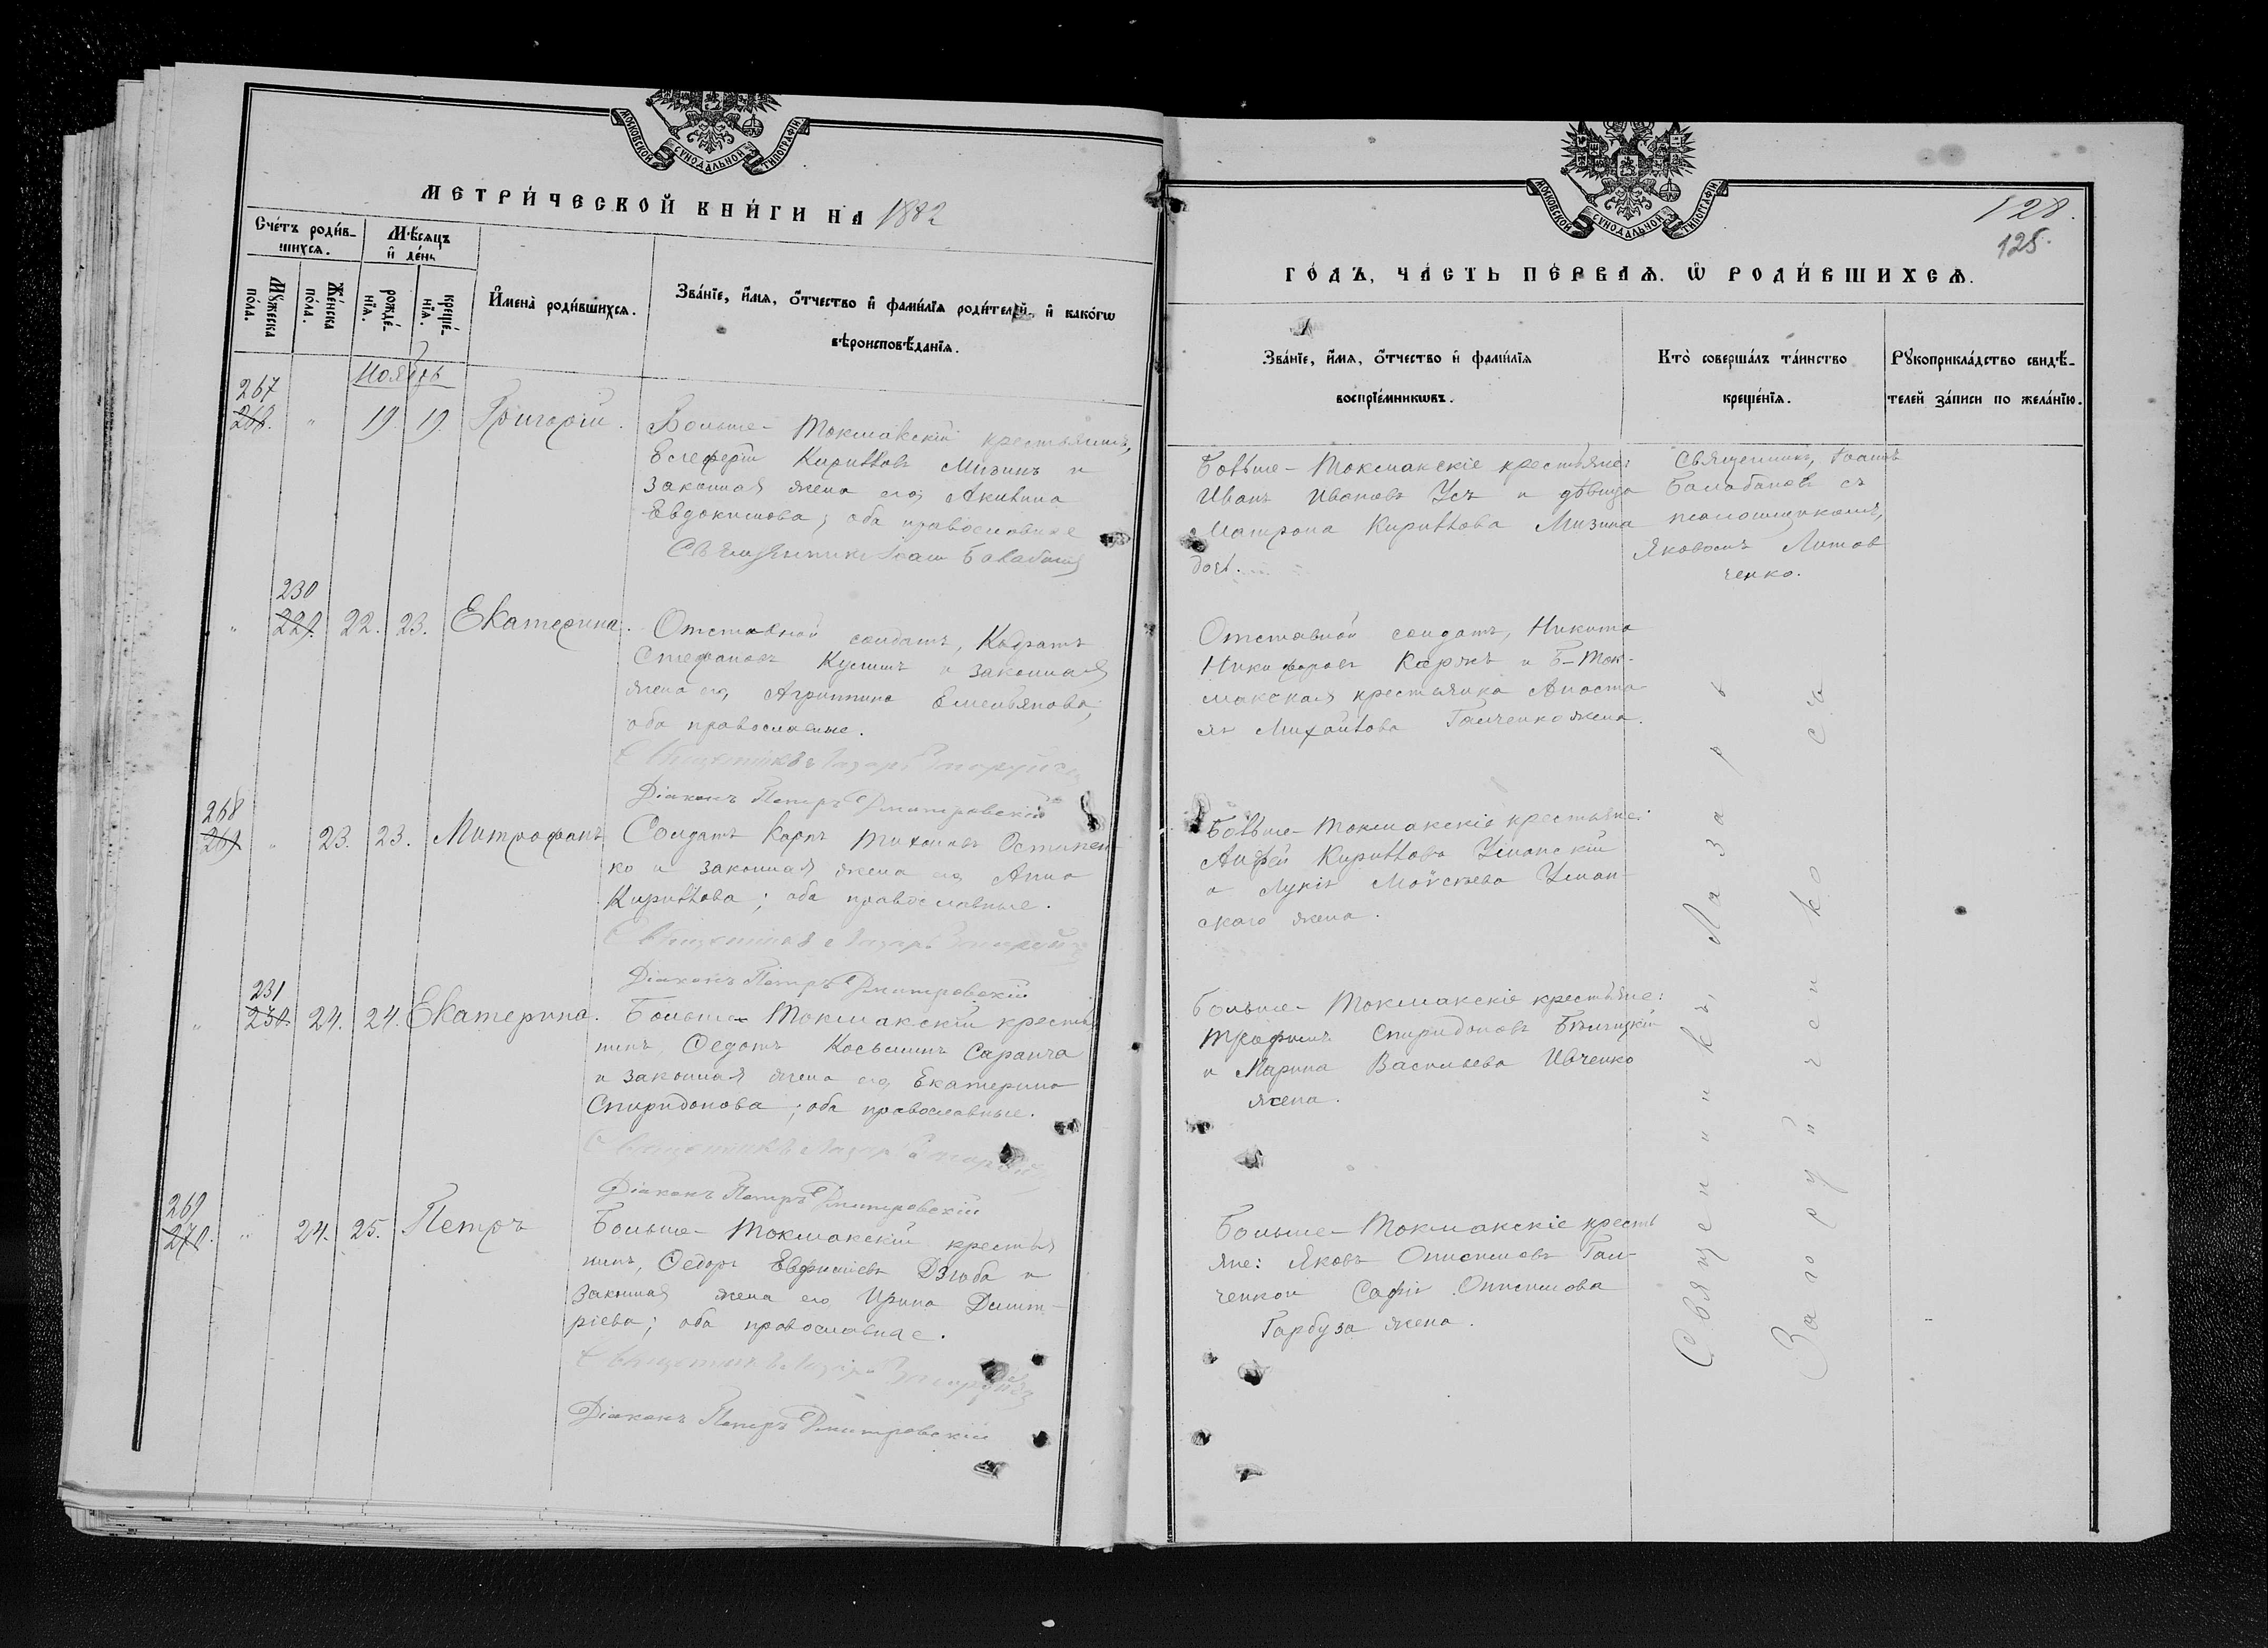 МОСКОВСКОЙ СѴНОДАЛЬНОЙ ТИПОГРАФІИ
МЕТРИ́ЧЕСКОЙ КНИ́ГИ НА 1882
Сче́тъ роди́в-
шихся.
Мѣ́сяцъ
и҆ де́нь
Мꙋ́жеска
по́ла.
Же́нска
по́ла.
рожде́-
нїя.
креще́-
нїя.
И҆мена̀ роди́вшихся.
Зва́нїе, и҆́мя, ѻ҆́тчество и҆ фами́лїя роди́телей, и҆ како́гѡ
вѣроисповѣ́данїя.
Ноябрь
267
268. " 19. 19. Григорій.
Больше-Токмакскій крестьянинъ,
Елеферій Кирилловъ Мизинъ и
законная жена его Акилина
Евдокимова; оба православные
Священникъ Іоанн Балабанов
230
" 229. 22. 23. Екатерина.
Отставной солдатъ, Кодратъ
Стефановъ Куличъ и законная
жена его Агриппина Емельянова;
оба православные.
Священникъ Лазарь Загоруйченко
Діаконъ Петръ Дмитровскій
268
269. " 23. 23. Митрофанъ
Солдатъ Карпъ Тихоновъ Остапен-
ко и законная жена его Анна
Кириллова; оба православные.
Священникъ Лазарь
Діаконъ Петръ Дмитровскій
231
" 230. 24. 24. Екатерина.
Больше-Токмакскій крестья
нинъ, Ѳедотъ Косьминъ Саранча
и законная жена его Екатерина
Спиридонова; оба православные.
Священникъ Лазарь
Діаконъ Петръ Дмитровскій
269
270. " 24. 25. Петръ
Больше-Токмакскій крестья
нинъ, Ѳедоръ Евфиміевъ Дзюба и
законная жена его Ирина Димит-
ріева; оба православные.
Священникъ Лазарь
Діаконъ Петръ Дмитровскій
МОСКОВСКОЙ СѴНОДАЛЬНОЙ ТИПОГРАФІИ
128.
125.
ГО́ДЪ, ЧА́СТЬ ПЕ́РВАЯ. Ѡ҆ РОДИ́ВШИХСЯ.
Зва́нїе, и҆́мя, ѻ҆́тчество и҆ фами́лїя
воспрїе́мникѡвъ.
Кто̀ соверша́лъ та́инство
креще́нїя.
Рꙋкоприкла́дство свидѣ́-
телей за́писи по жела́нїю.
Больше-Токмакскіе крестьяне:
Иванъ Ивановъ Усъ и дѣвица
Матрона Кириллова Мизина
дочь.
Священникъ, Іоаннъ
Балабановъ съ
псаломщикомъ,
Яковомъ Литов
ченко.
Отставной солдатъ, Никита
Никифоровъ Коржъ и Б-Ток-
макская крестьянка Анаста
ія Михайлова Галченко жена.
Больше-Токмакскіе крестьяне:
Андрей Кирилловъ Уманскій
и Лукія Моѵсѣева Уман-
скаго жена.
Больше-Токмакскіе крестьяне:
Трофимъ Спиридоновъ Бѣлицкій
и Марина Васильева Ивченко
жена.
Больше-Токмакскіе кресть
яне: Яковъ Онисимовъ Гал-
ченко и Софія Онисимова
Гарбуза жена.
Священникъ, Лазарь
Загоруйченко съ